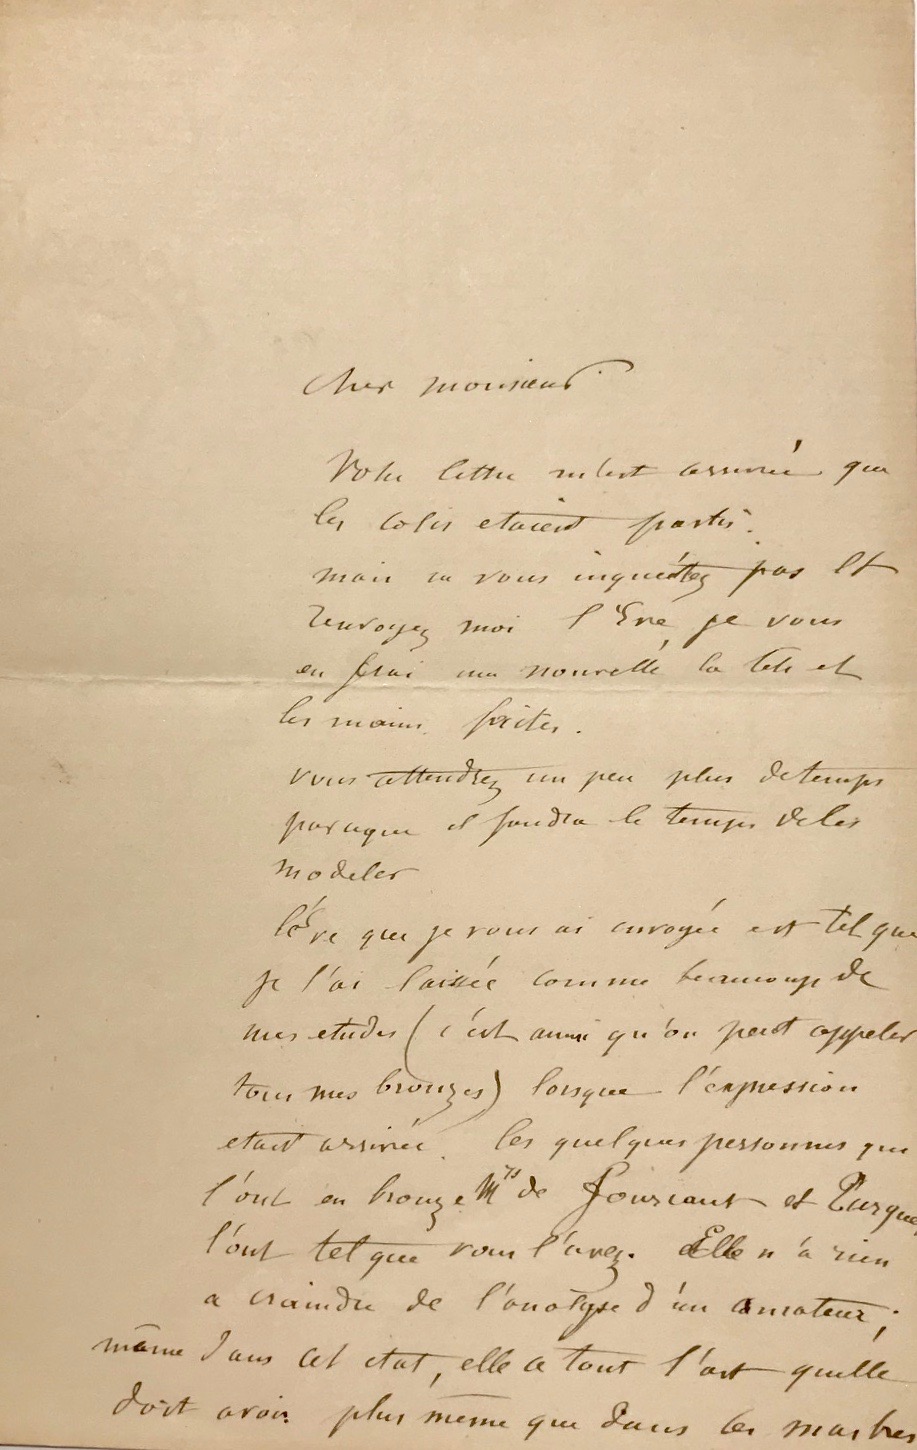 Cher monsieur
Votre lettre m'est arrivée que
les colis etaient partis.
mais ne vous inquiétez pas et
renvoyez moi l'Eve, je vous
en ferai une nouvelle la tete et
les mains faites.
vous attendrez un peu plus de temps
parceque il faudra le temps de les
modeler
l'Éve que je vous ai envoyée est tel que
je l'ai laissée comme beaucoup de
mes etudes (c'est ainsi qu'on peut appeler
tous mes bronzes) lorsque l'expression
etait arrivée. les quelques personnes qui
l'ont en bronze Mrs de et
l'ont tel que vous l'avez. Elle n'a rien
a craindre de l'analyse d'un amateur;
même dans cet etat, elle a tout l'art quelle
doit avoir plus même que dans les marbres